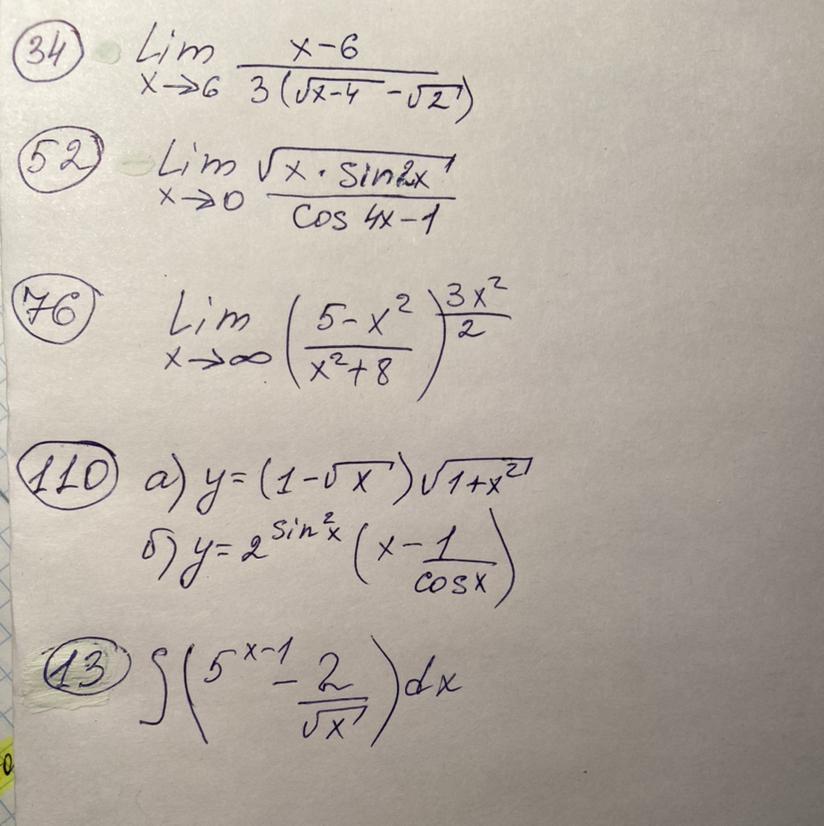 34 Lim x→6 (x-6)/(3(√(x-4) - √2))
52 Lim x→0 √(x · sin2x)/(cos 4x-1)
76 Lim x→∞ ((5-x²)/(x²+8))^(3x²/2)
110 а) y=(1-√x)√(1+x²)
б) y=2^(sin²x) (x - 1/cosx)
13 ∫(5^(x-1) - 2/√x)dx